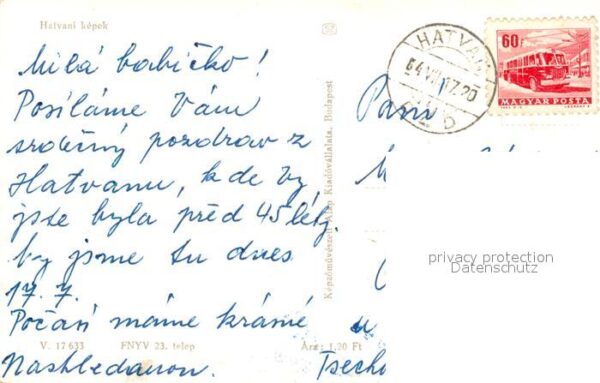 Hatvani képek
Milá babičko!
Posíláme Vám
srdečný pozdrav z
Hatvanu, kde Vy
jste byla před 45 léty.
by jsme tu dnes
17. 7.
Počasí máme krásné
Nashledanou.
V. 17 633 FNYV 23. telep Ára: 1,20 Ft
Képzőművészeti Alap Kiadóvállalata, Budapest
HATVAN
64 VII 17. 20
60 f
MAGYAR POSTA
Paní
privacy protection
Datenschutz
Tsecho